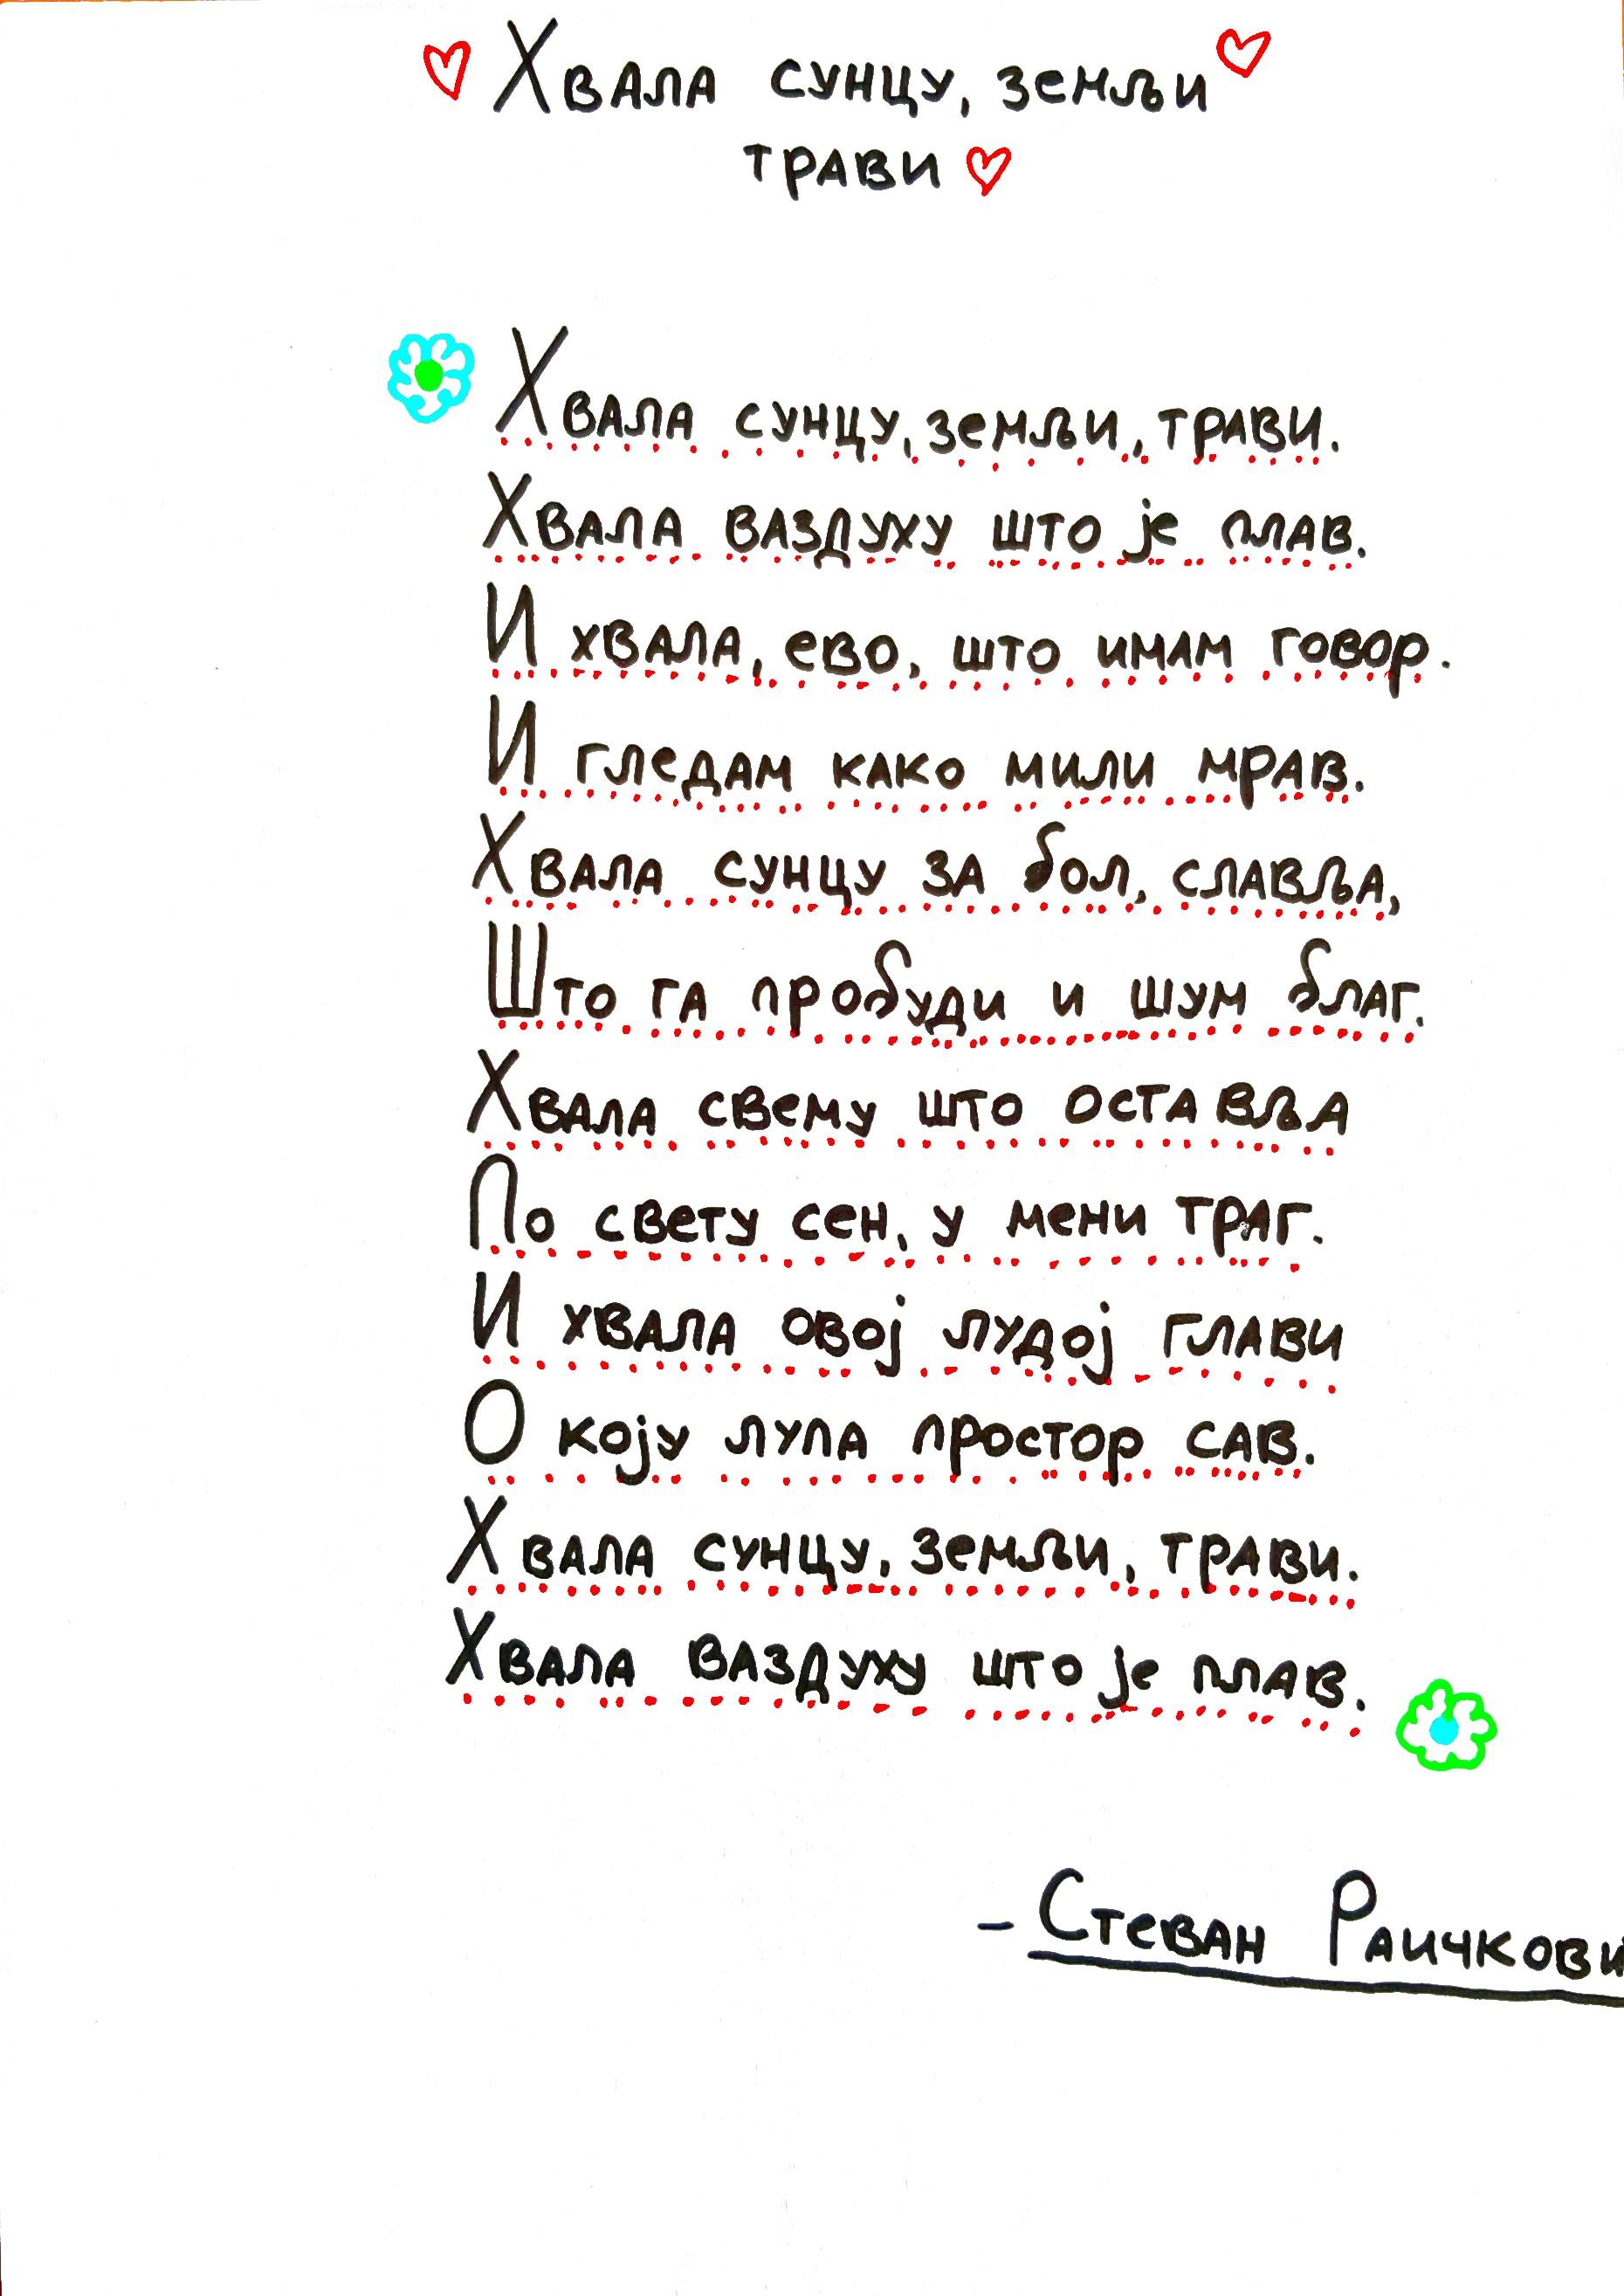 Хвала сунцу, земљи
трави
Хвала сунцу, земљи, трави.
Хвала ваздуху што је плав.
И хвала, ево, што имам говор.
И гледам како мили мрав.
Хвала сунцу за бол, славља,
Што га пробуди и шум благ.
Хвала свему што оставља
По свету сен, у мени траг.
И хвала овој лудој глави
О коју лупа простор сав.
Хвала сунцу, земљи, трави.
Хвала ваздуху што је плав.
- Стеван Раичкови